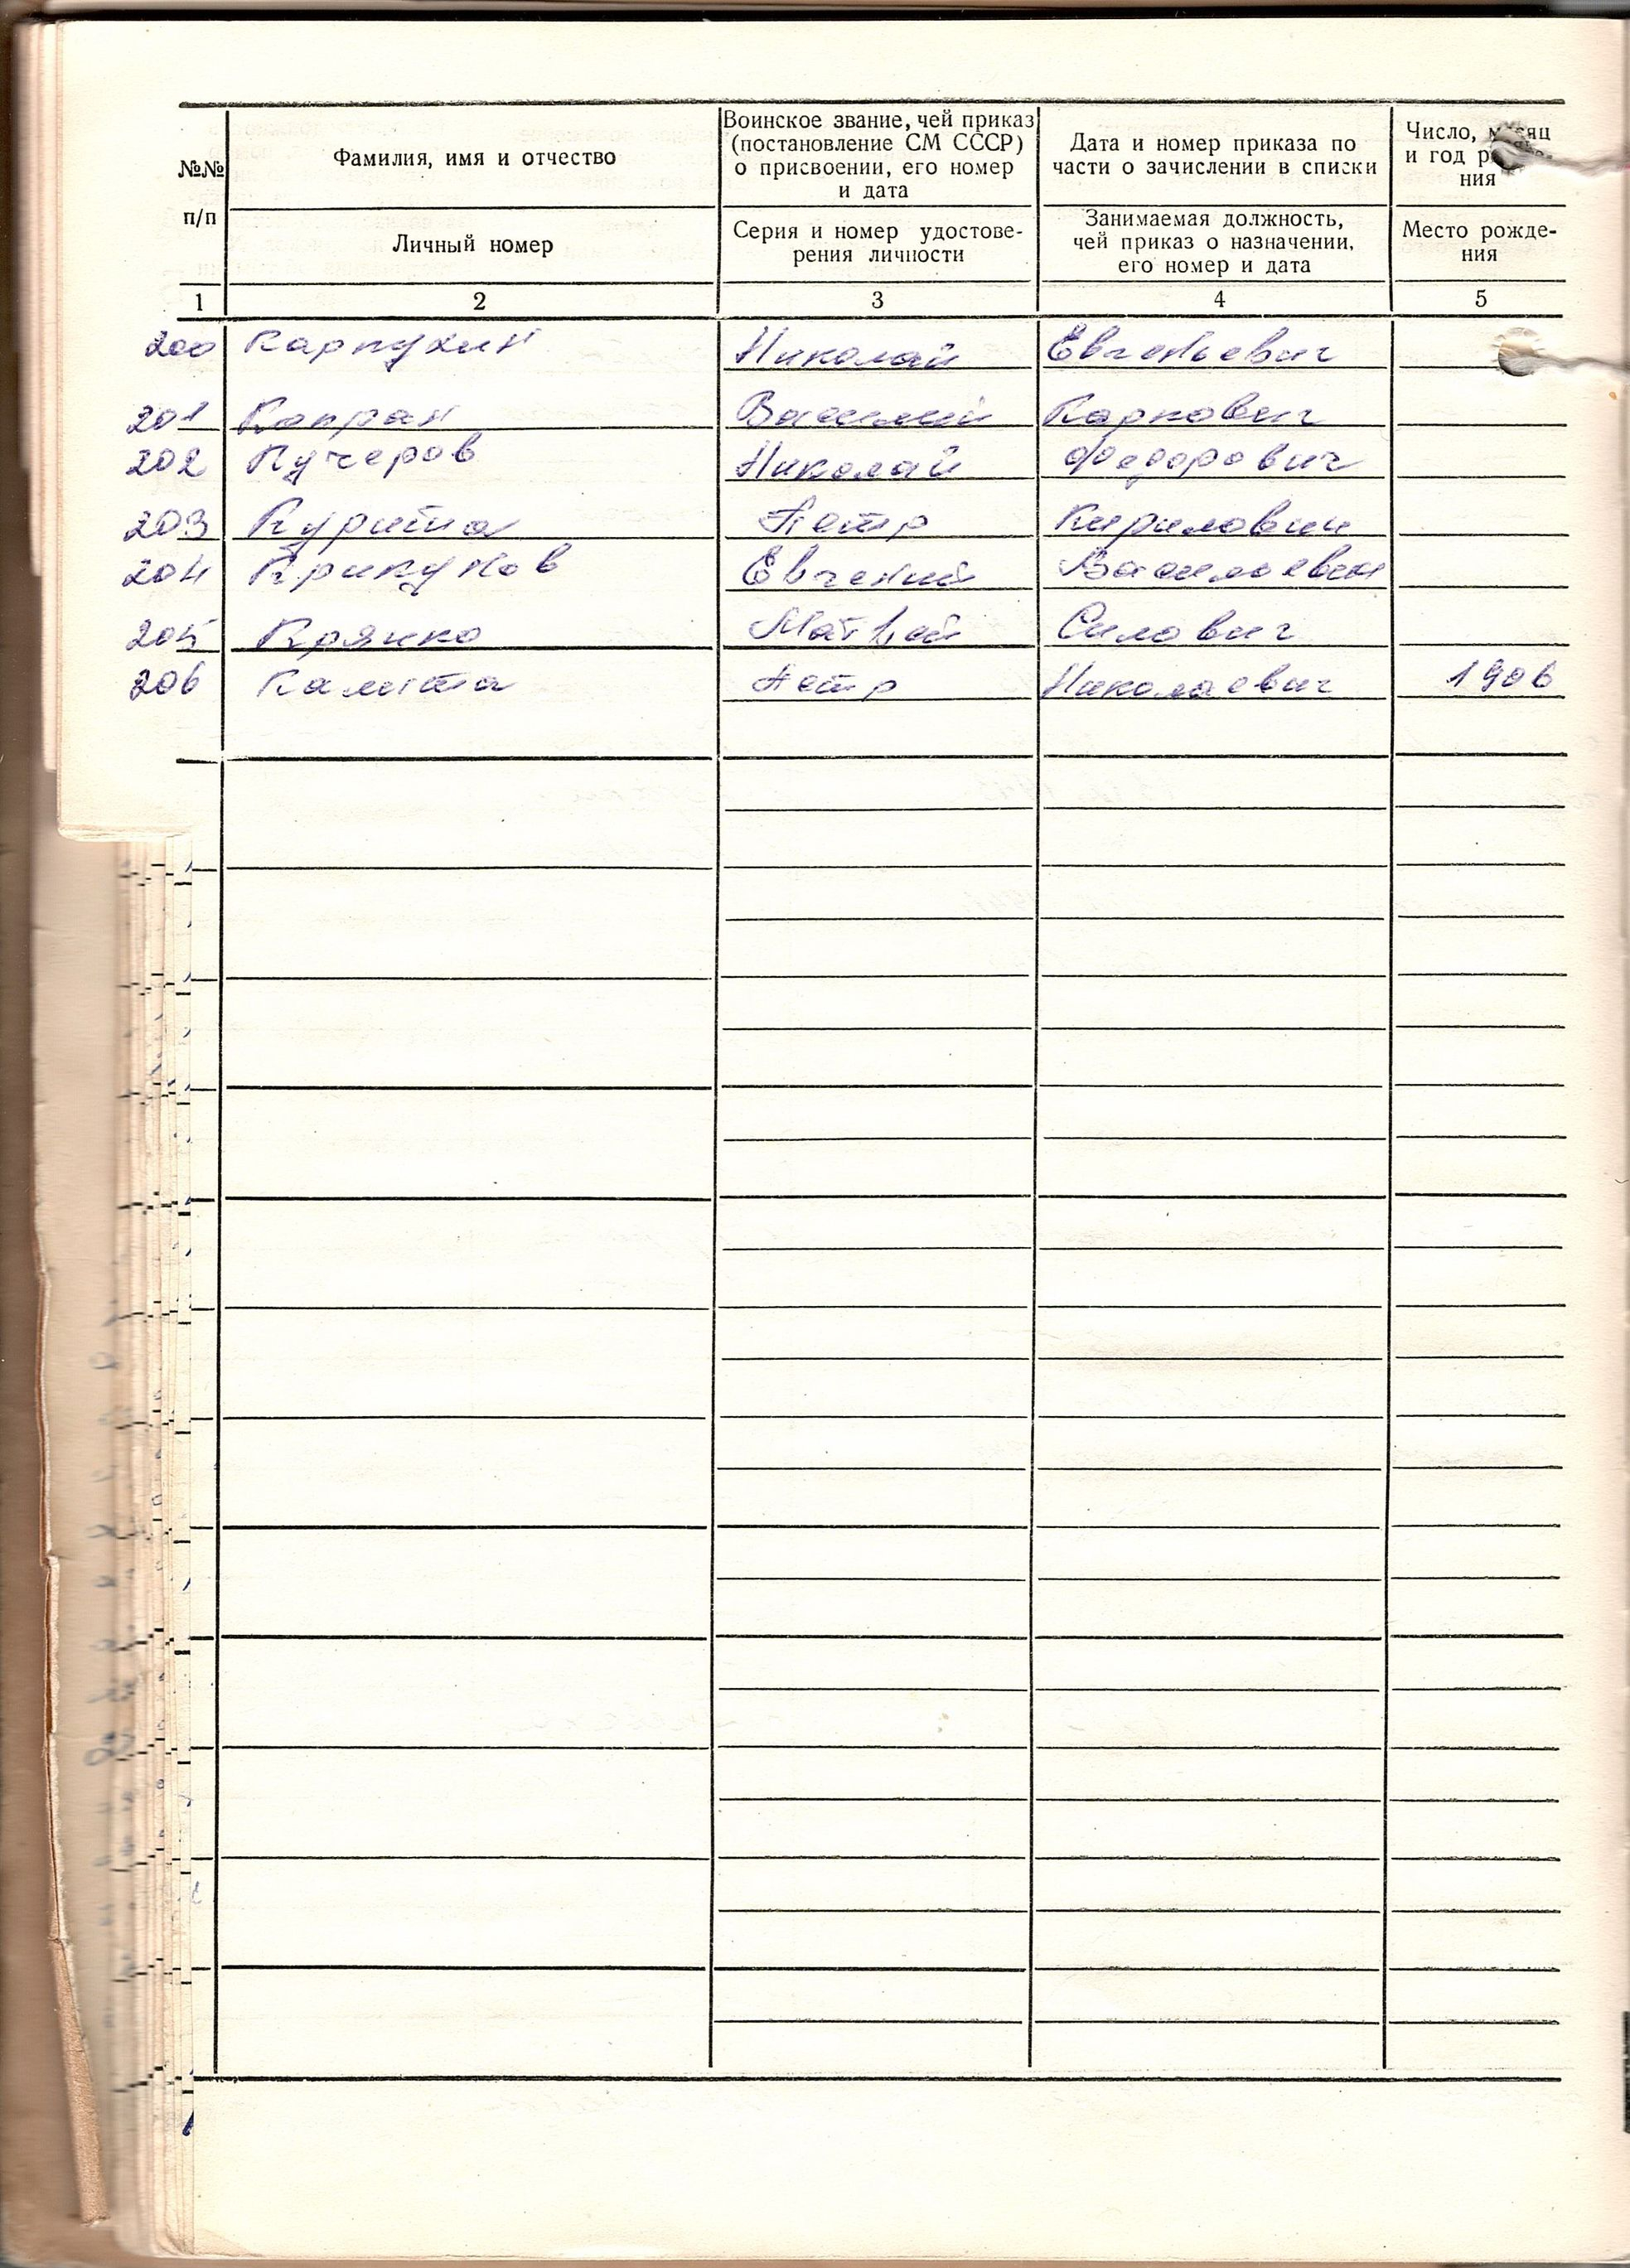 №№ п/п
Фамилия, имя и отчество
Личный номер
Воинское звание, чей приказ
(постановление СМ СССР)
о присвоении, его номер
и дата
Серия и номер удостове-
рения личности
Дата и номер приказа по
части о зачислении в списки
Занимаемая должность,
чей приказ о назначении,
его номер и дата
Число,
и год
ния
Место рожде-
ния
1 2 3 4 5
200 Карпухин Николай Евгеньевич
201 Капран Василий Карпович
202 Кучеров Николай Федорович
203 Курита Петр Кирилович
204 Крикунов Евгений Васильевич
205 Крянко Матвей Силович
206 Калита Петр Николаевич 1906